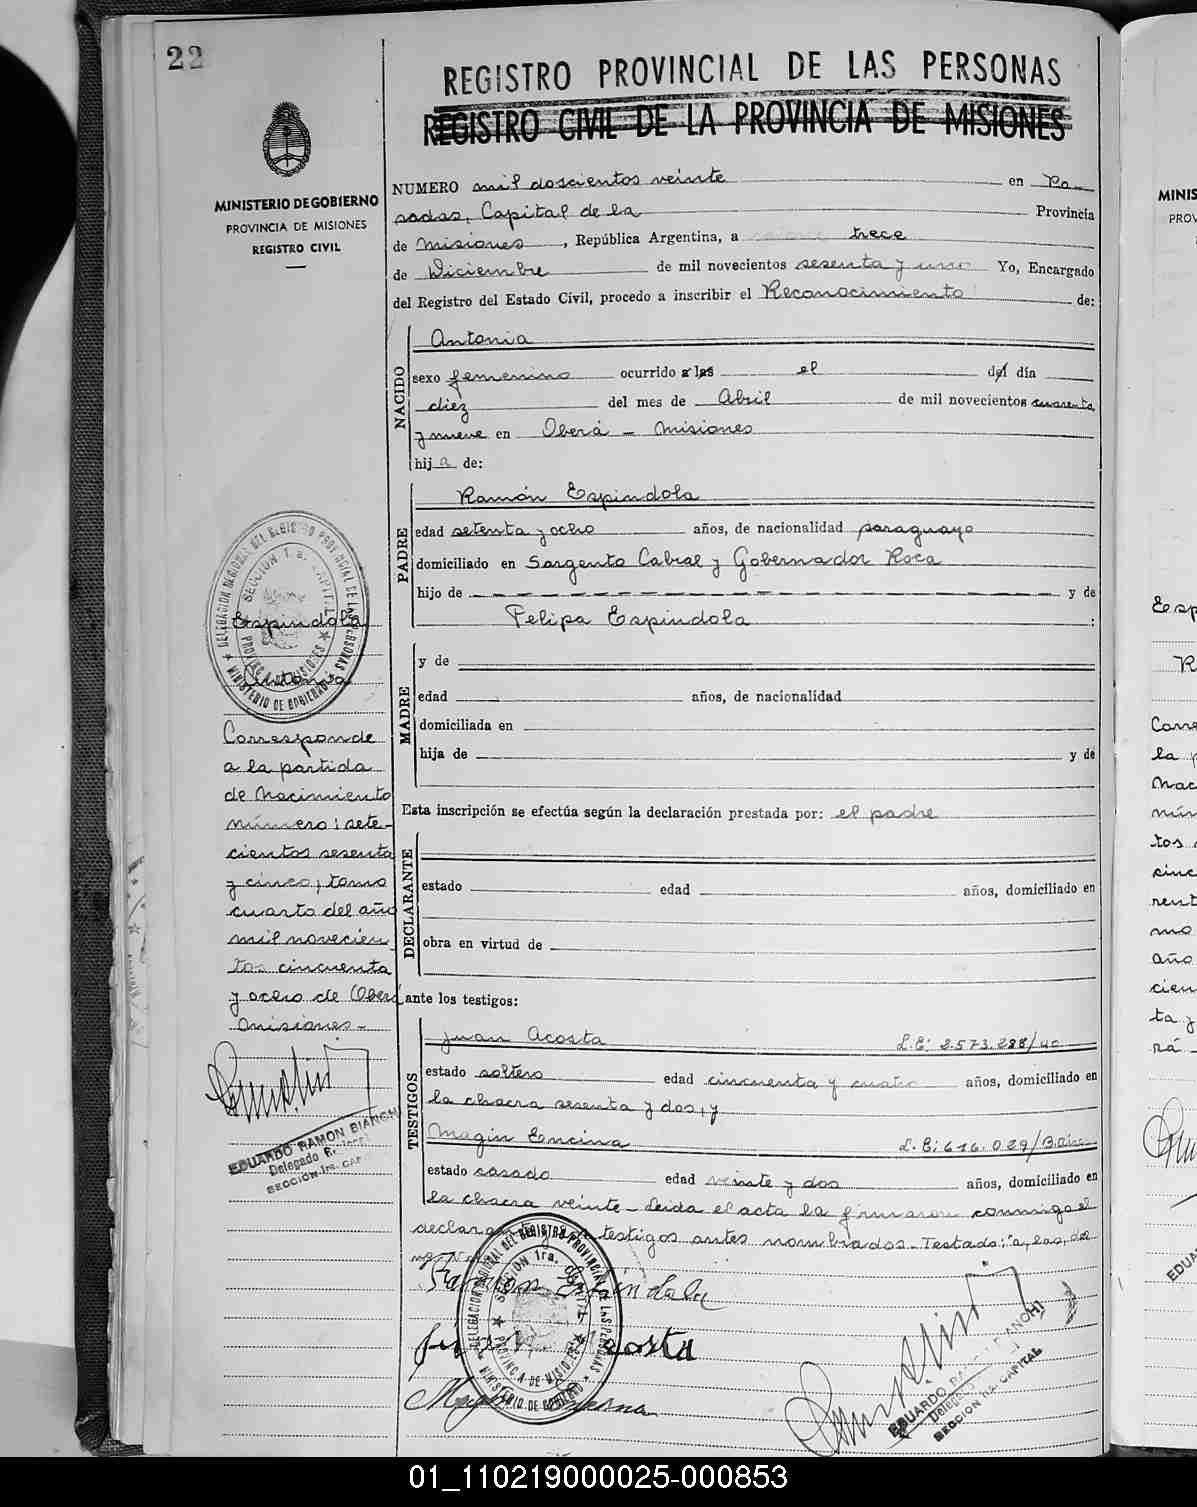 22
REGISTRO PROVINCIAL DE LAS PERSONAS
REGISTRO CIVIL DE LA PROVINCIA DE MISIONES
MINISTERIO DE GOBIERNO
PROVINCIA DE MISIONES
REGISTRO CIVIL
NUMERO mil doscientos veinte en Po-
sadas, Capital de la Provincia
de Misiones, República Argentina, a trece
de Diciembre de mil novecientos sesenta y uno Yo, Encargado
del Registro del Estado Civil, procedo a inscribir el Reconocimiento de:
NACIDO
Antonia
sexo femenino ocurrido a las el del día
diez del mes de Abril de mil novecientos cuarenta
y nueve en Oberá - Misiones
hija de:
PADRE
Ramón Espindola
edad setenta y ocho años, de nacionalidad paraguayo
domiciliado en Sargento Cabral y Gobernador Roca
hijo de y de
Felipa Espindola :
MADRE
y de
edad años, de nacionalidad
domiciliada en
hija de y de
Esta inscripción se efectúa según la declaración prestada por: el padre
DECLARANTE
estado edad años, domiciliado en
obra en virtud de
ante los testigos:
TESTIGOS
Juan Acosta L.E: 2.573.288/40
estado soltero edad cincuenta y cuatro años, domiciliado en
la chacra sesenta y dos, y
Magin Encina L.E: 616.029/
estado casado edad veinte y dos años, domiciliado en
la chacra veinte - Leida el acta la firmaron conmigo el
declarante y los testigos antes nombrados - Testado: "a, las, del
Ramon Espindola
Juan Acosta
Magin Encina
Espindola
Antonia
Corresponde
a la partida
de Nacimiento
número: sete-
cientos sesenta
y cinco, tomo
cuarto del año
mil novecien
tos cincuenta
y ocho de Oberá
Misiones -
EDUARDO RAMON BIANCHI
Delegado
SECCION 1ra. CAPITAL
DELEGACION REGIONAL DEL REGISTRO PROVINCIAL DE LAS PERSONAS
SECCION 1ra. CAPITAL
PROVINCIA DE MISIONES
MINISTERIO DE GOBIERNO
DELEGACION REGIONAL DEL REGISTRO PROVINCIAL DE LAS PERSONAS
SECCION 1ra. CAPITAL
PROVINCIA DE MISIONES
MINISTERIO DE GOBIERNO
EDUARDO RAMON BIANCHI
Delegado
SECCION 1ra. CAPITAL
MINIS
PROV
Esp
R
Corre
la p
Nac
núm
tos
cinc
rent
mo
año
cien
ta y
rá -
EDUA
01_110219000025-000853